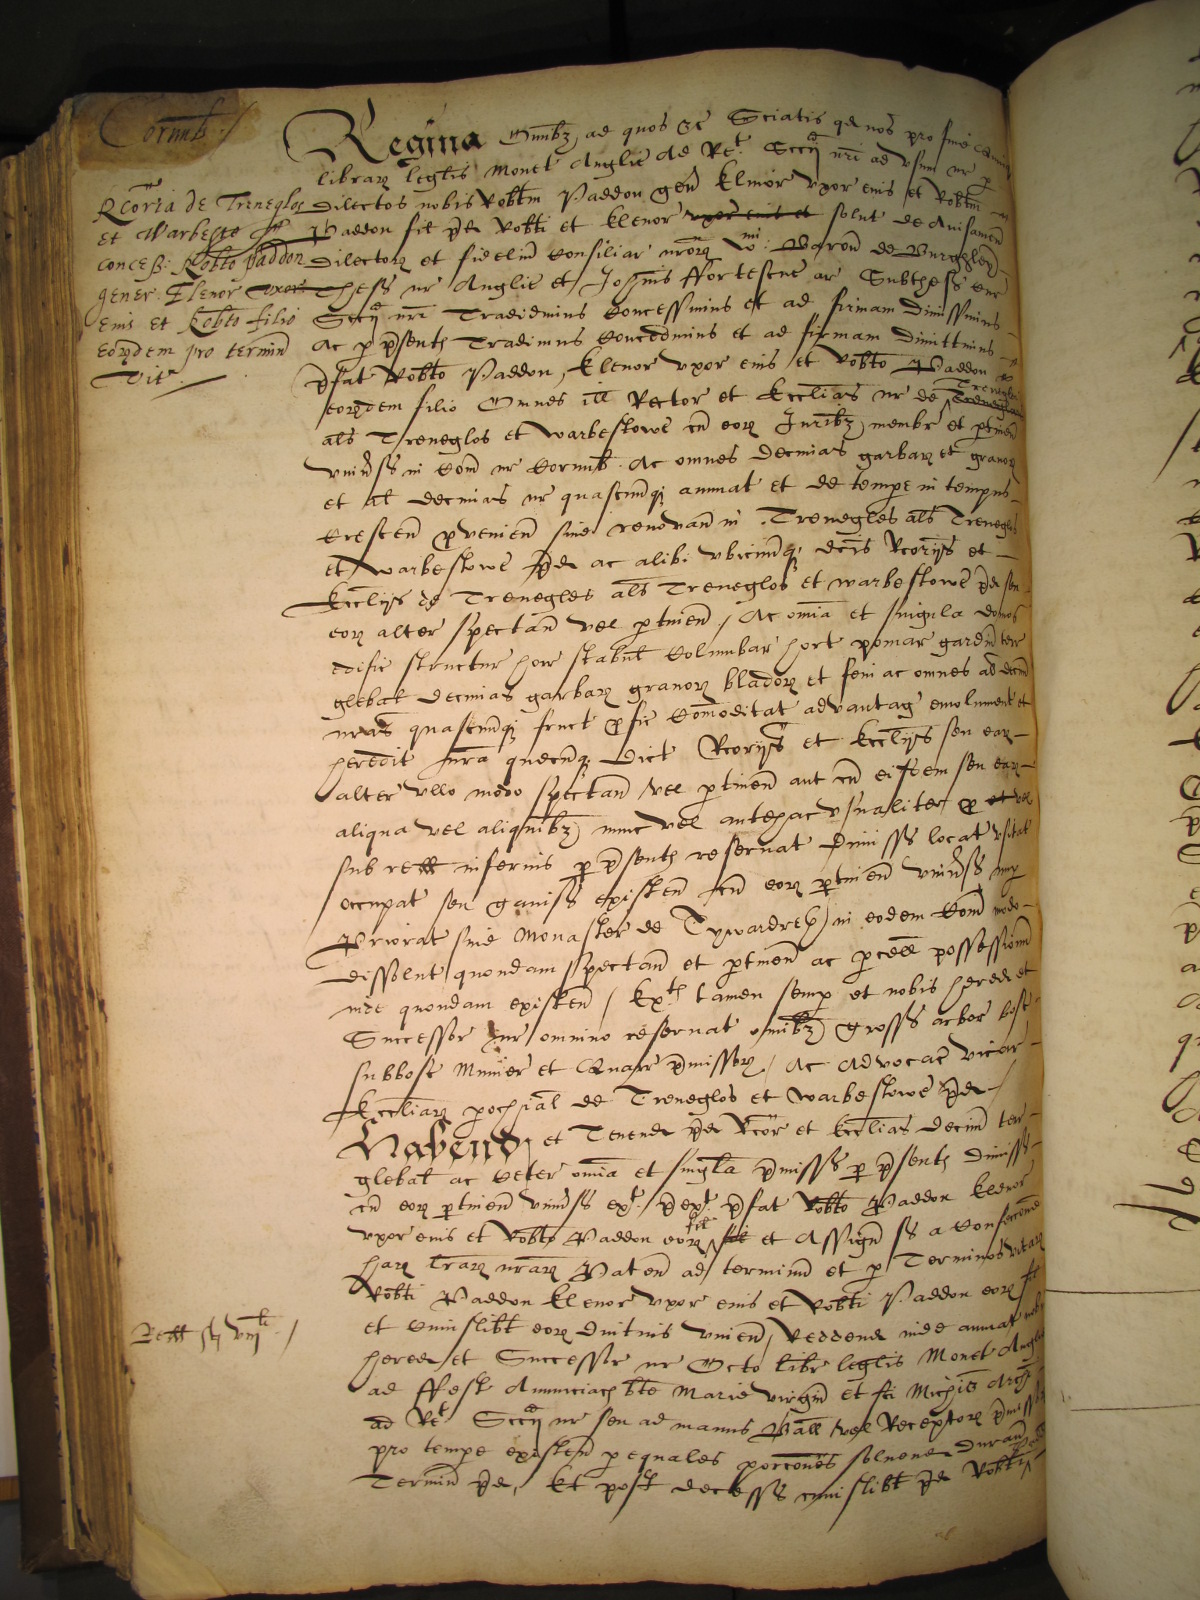 Cornub
Rcoria de Treneglos
et Warbesto
concess Robto Paddon
gener Elenor uxor
eius et Robto filio
eorundem pro termin
vite
Regina Omibz ad quos &c Sciatis qd nos pro fine
librar legalis Monet Anglie Ad Rec Sccij nri ad usum nr p
dilectos nobis Robtm Paddon gen Elinor uxor eius et Robtm
Paddon fil pd Robti et Elenor uxor eius et solut de Avisamen
dilector et fidelm Consiliar nror W Baron de Burghley
Thess nr Anglie et Johnis ffortescue ar Subthess Cur
Sccij nri Tradidimus Concessimus et ad firmam Dimisimus
Ac p psent Tradimus Concedimus et ad firmam dimittimus
pfat Robto Paddon, Elenor uxor eius et Robto Paddon
eorundem filio Omnes ill Rector et Ecclias nr de Treneglos
als Treneglos et Warbestowe cu eor Juribz membr et ptinen
univs in Com nr Cornub. Ac omnes decimas garbar et granor
et al decimas nr quascunq annuat et de tempe in tempus
Crescen provenien sive renovan in Trenegles als Treneglos
et Warbestowe pd ac alibi ubicunq dcis Rcorijs et
Ecclijs de Trenegles als Treneglos et Warbestowe pd seu
eor alter spectan vel ptinen, Ac omia et singula domos
edific structur horr stabul Columbar hort pomar gardin terr
glebal decimas garbar granor blador et feni ac omnes al decim
nras quascunq fruct pfic Comoditat advantag emolument et
heredit nra quecunq Dict Rcorijs et Ecclijs seu ear
alter ullo modo spectan vel ptinen aut cu eisdem seu ear
aliqua vel aliquibz nunc vel antehac usualiter p et vel
sub redd inferius p psent reservat dimiss locat usitat
occupat seu gavis existen cu eor ptinen univs nup
Priorat sive Monaster de Tywardreth in eodem Com modo
dissolut quondam spectan et ptinen ac pcell possessionu
inde quondam existen, Ext tamen semp et nobis hered et
Successor nr omnino reservat omibz gross arbor bosc
subbosc Miner et Quarr pmissor, Ac Advocac vicar
Eccliar pochial de Treneglos et Warbestowe pd
Habend et Tenend pd Rcor et Ecclias decim terr
glebal ac Ceter omia et singla pmiss p psent dimiss
cu eor ptinen univs ext pext pfat Robto Paddon Elenor
uxor eius et Robto Paddon eor fil et Assign ss a Confeccone
har lrar nrar Paten ad terminu et p Terminos vitar
Robti Paddon Elenor uxor eius et Robti Paddon eor fil
et cuiuslibt eor diutius viven, Reddend inde annuat nobis
hered et Successor nr Octo libr legalis Monet Anglie
Redd viij li
ad ffest Annunciac bte Marie virgin et sci Michis Archi
ad Rec Sccij nr seu ad manus Ball vel Receptor pmissor
pro tempe existen p equales porcones solvend duran
Termin pd, Et post decess cuiuslibt pd Robti